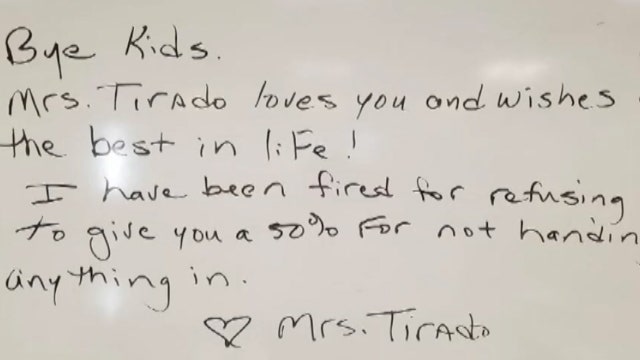 Bye Kids.
Mrs. Tirado loves you and wishes
the best in life!
I have been fired for refusing
to give you a 50% for not handin
anything in.
♡ Mrs. Tirado